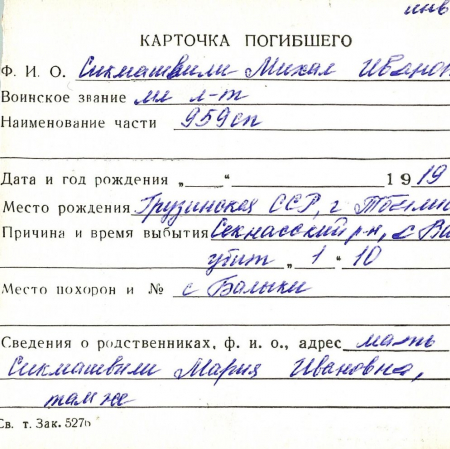 инв
КАРТОЧКА ПОГИБШЕГО
Ф. И. О. Сикмашвили Михаил Иванов
Воинское звание мл л-т
Наименование части 959сп
Дата и год рождения „ “ 1919
Место рождения Грузинская ССР, г Тбили
Причина и время выбытия р-н, с
убит „ 1 “ 10
Место похорон и № с Балыки
Сведения о родственниках, ф. и. о., адрес мать
Сикмашвили Мария Ивановна,
там же
Св. т. Зак. 527